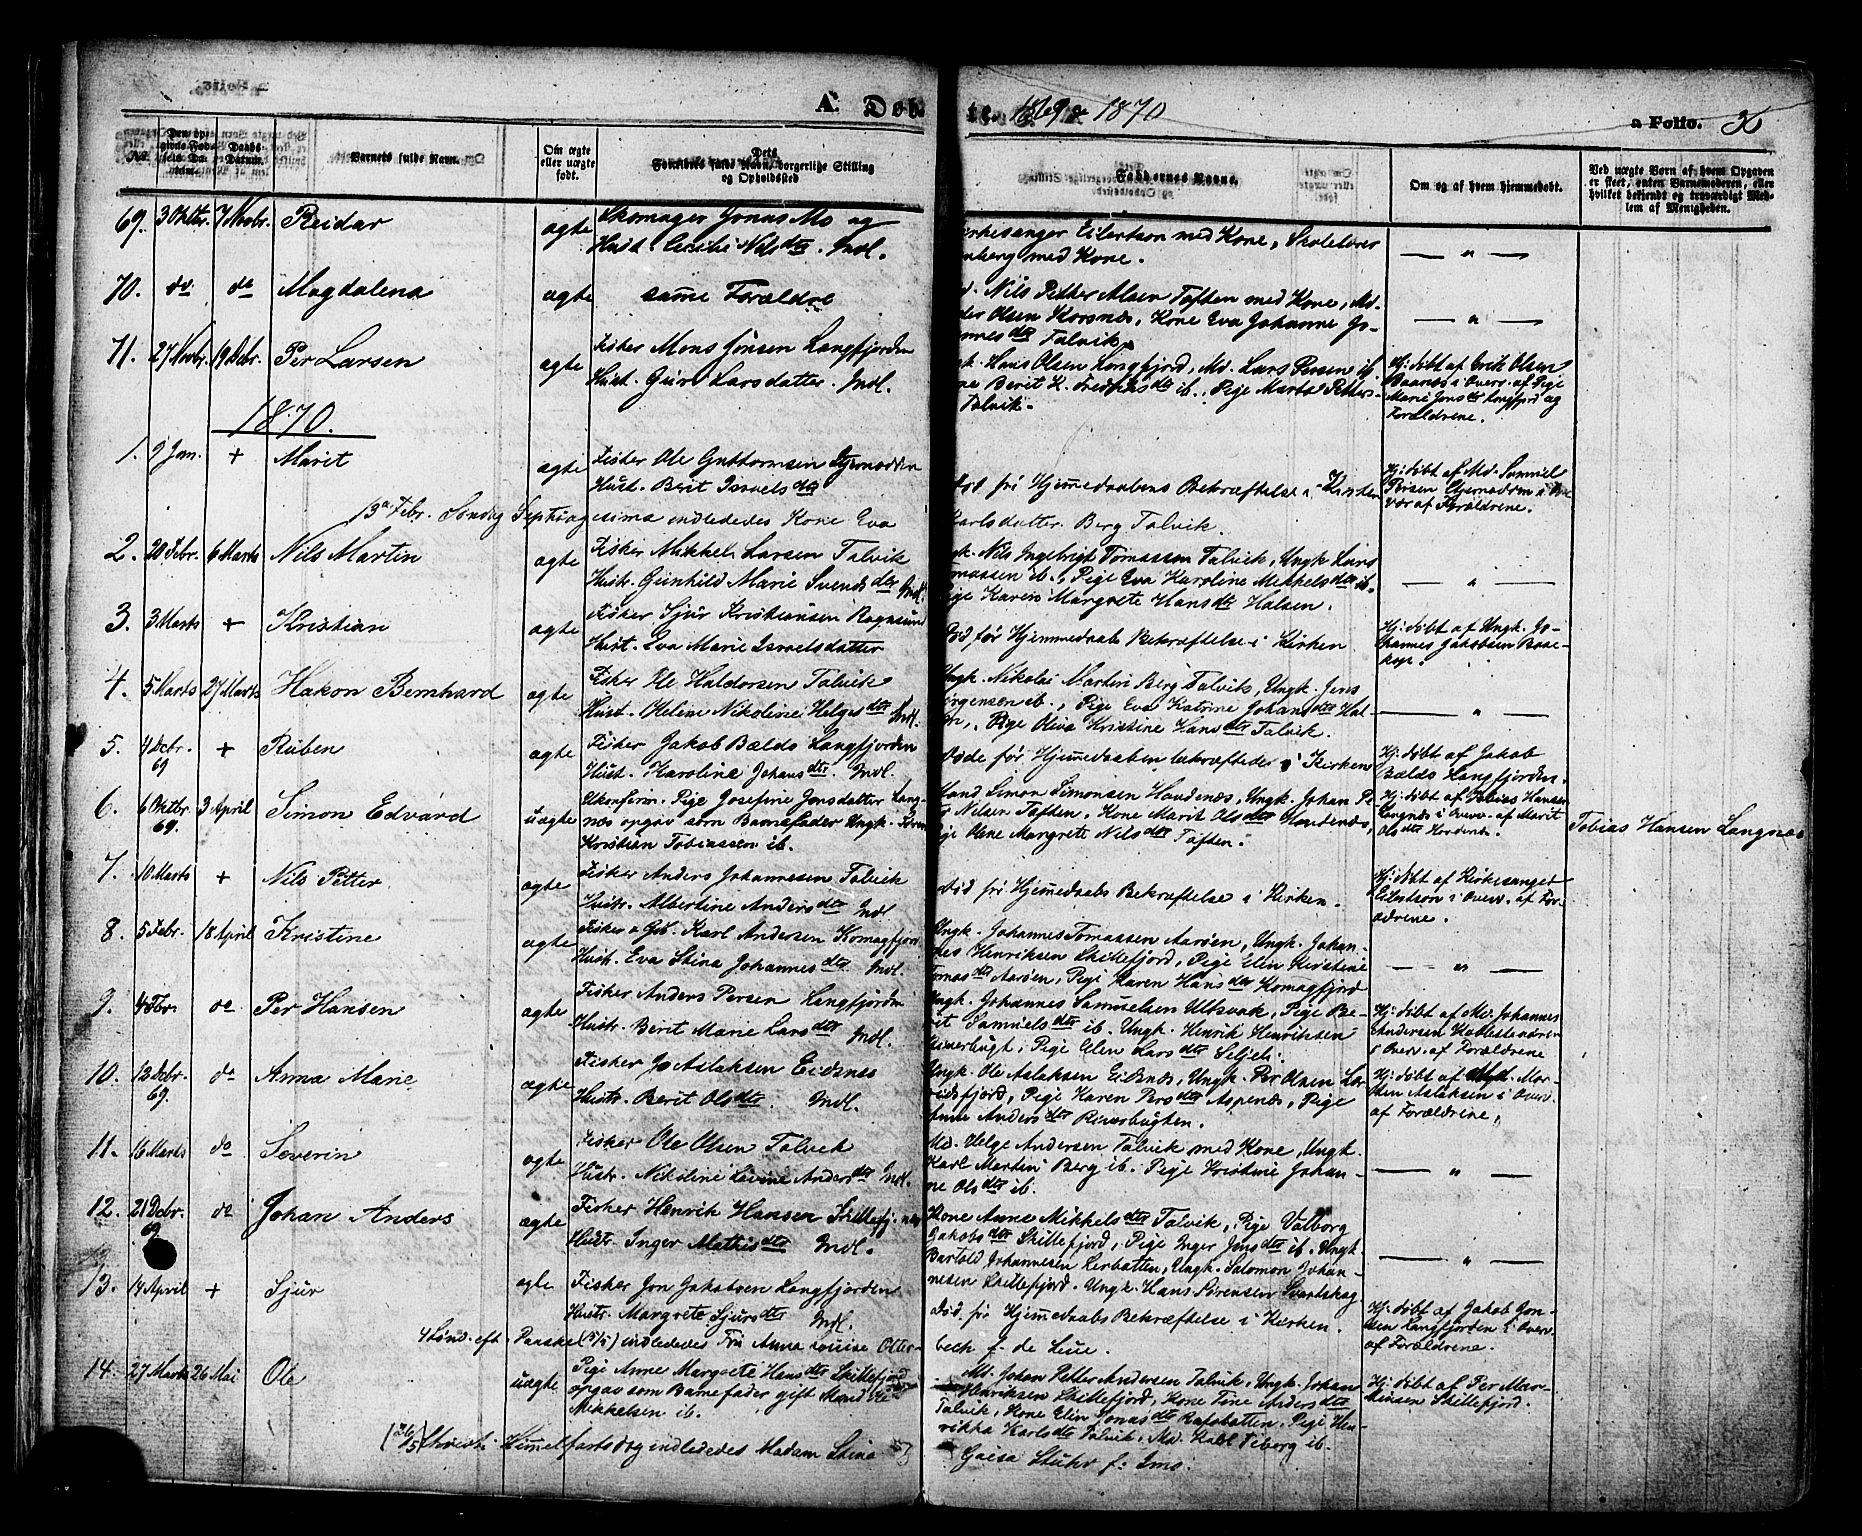 A. Døb te. 1869 & 1870
a Folio. 36
No.
Barnets fulde Navn.
Om ægte eller uægte født.
Forældrenes fulde Navn, borgerlige Stilling og Opholdsted
Faddernes Navne.
Om og af hvem hjemmedøbt.
Ved uægte Børn af hvem Opgaven er skeet, enten Barnemoderen, eller hvilket bekjendt og troværdigt Medlem af Menigheden.
69. 3 Oktbr. 7 Novbr. Reidar ægte Skomager Jonas Mo og
Hust. Nilsdtr. Indl.
Kirkesanger Eilertsen med Kone, Skolelærer
med Kone. — " —
70. do do Magdalena ægte samme Forældre
Nils Petter Olsen Toften med Kone,
Olsen Korsnæs, Kone Eva Johanne Jo-
dtr Talvik. — " —
71. 27 Novbr. 19 Debr. Per Larsen ægte Fisker Mons Jonsen Langfjorden
Hust. Guri Larsdatter. Indl.
Hans Olsen Langfjord, Md. Lars Persen ib.
Berit K. Fredriksdtr ib., Pige Marta Petters-
Talvik.
Hj: døbt af Erik Olsen
i Overv. af Pige
Marie Jonsdtr Langfjord og
Forældrene.
1870.
1. 9 Jan. + Marit ægte Fisker Ole Guttormsen
Hust. Berit Israelsdtr
Død før Hjemmedaabens Bekræftelse i Kirken
Hj: døbt af Md. Samuel
Persen i Over-
vær af Forældrene.
13de Febr. Søndag Septuagesima indlededes Kone Eva
Karlsdatter Berg Talvik.
2. 20 Febr. 6 Marts Nils Martin ægte Fisker Mikkel Larsen Talvik
Hust. Gunhild Marie Svendsdtr Indl.
Nils Ingebrigt Tomassen Talvik, Ungk. Lars
Tomassen ib., Pige Eva Karoline Mikkelsdtr ib.
Pige Karen Margrete Hansdtr Halsen. — " —
3. 3 Marts + Kristian ægte Fisker Sjur Kristiansen Rognsund
Hust. Eva Marie Israelsdatter
Død før Hjemmedaabs Bekræftelse i Kirken
Hj: døbt af Ungk. Jo-
hannes Jakobsen Bose-
kop.
4. 5 Marts 27 Marts Hakon Bernhard ægte Fisker Ole Haldorsen Talvik
Hust. Helene Nikoline Helgesdtr Indl.
Ungk. Nikolai Martin Berg Talvik, Ungk. Jens
Jørgensen ib., Pige Eva Katrine Johansdtr Hal-
Pige Oliva Kristine Hansdtr Talvik. — " —
5. 4 Debr. 69 + Ruben ægte Fisker Jakob Bælds Langfjorden
Hust. Karoline Johansdtr. Indl.
Døde før Hjemmedaaben bekræftedes i Kirken
Hj: døbt af Jakob
Bælds Langfjorden.
6. 6 Oktbr. 69. 3 April Simon Edvard uægte Ukonfirm. Pige Josefine Jonsdatter Lang-
næs opgav som Barnefader Ungk.
Kristian Tobiassen ib.
Mand Simon Simonsen Hondenæs, Ungk. Johan Pe-
Nilsen Toften, Kone Marit Olsdtr Hondenæs,
Pige Oline Margrete Nilsdtr Toften.
Hj: døbt af Tobias Hansen
Langnæs i Overv. af Marit
Olsdtr
Tobias Hansen Langnæs
7. 10 Marts + Nils Petter ægte Fisker Anders Johannesen Talvik
Hustr. Albertine Andersdtr Indl
Død før Hjemmedaabs Bekræftelse i Kirken.
Hj: døbt af Kirkesanger
Eilertsen i Overv. af For-
ældrene.
8. 5 Febr. 18 April Kristine ægte Fisker & Gb. Karl Andersen Komagfjord
Hustr. Eva Stina Johannesdtr Indl.
Ungk. Johannes Tomassen Aarøen, Ungk. Johan-
nes Henriksen Skillefjord, Pige Elen Kirstine
Tomasdtr Aarøen, Pige Karen Hansdtr Komagfjord — " —
9. 4 Febr. do Per Hansen ægte Fisker Anders Persen Langfjorden
Hustr. Berit Marie Larsdtr Indl.
Ungk. Johannes Samuelsen Ulsvak, Pige Be-
rit Samuelsdtr ib. Ungk. Henrik Henriksen
Riverbugt, Pige Elen Larsdtr
Hj: døbt af Md. Johannes
Andersen
i Overv. af Forældrene
10. 12 Debr. 69. do Anna Marie ægte Fisker Jo Aslaksen Eidsnes
Hustr. Berit Olsdtr. Indl.
Ungk. Ole Aslaksen Eidsnæs, Ungk. Per Olsen
Pige Karen Persdtr Aspenæs, Pige
Anne Andersdtr Riverbugten.
Hj: døbt af Ungk. Mor-
ten Aslaksen i Overv.
af Forældrene,
11. 16 Marts do Severin ægte Fisker Ole Olsen Talvik
Hustr. Nikoline Lovine Andersdtr Indl.
Md. Helge Andersen Talvik med Kone, Ungk.
Karl Martin Berg ib. Pige Kristine Johan-
ne Olsdtr ib. — " —
12. 21 Debr. 69 do Johan Anders ægte Fisker Henrik Hansen
Hustr. Inger Mathisdtr Indl.
Kone Anne Mikkelsdtr Talvik, Pige Valborg
Jakobsdtr Skillefjord, Pige Inger Jonsdtr ib. Ungk.
Bartold Johannesen Lerbotten, Ungk. Salomon Johan-
nesen Skillefjord. Ungk. Hans Sørensen Svartskog — " —
13. 14 April + Sjur ægte Fisker Jon Jakobsen Langfjorden
Hustr. Margrete Sjursdtr Indl.
Død før Hjemmedaabs Bekræftelse i Kirken.
Hj: døbt af Jakob Jon-
sen Langfjorden i Overv.
af Forældrene.
4 Sønd. eft. Paaske (15/5) indlededes Fru Anna Louise Otter-
bech f. de Seue.
14. 27 Marts 26 Mai Ole uægte Pige Anne Margrete Hansdtr Skillefjord
opgav som Barnefader gift Mand
Mikkelsen ib.
Md. Johan Petter Andersen Talvik, Ungk. Johan
Henriksen Skillefjord, Kone Tine Andersdtr
Talvik, Kone Elen Jonasdtr Rafsbotten, Pige Hen-
rikka Karlsdtr Talvik, Md. Karl Viberg ib.
Hj: døbt af Per Mar-
tinsen Skillefjord.
(26/5) Christi Himmelfartsdag indlededes Madam Stina
Gaisa Stuhr f: